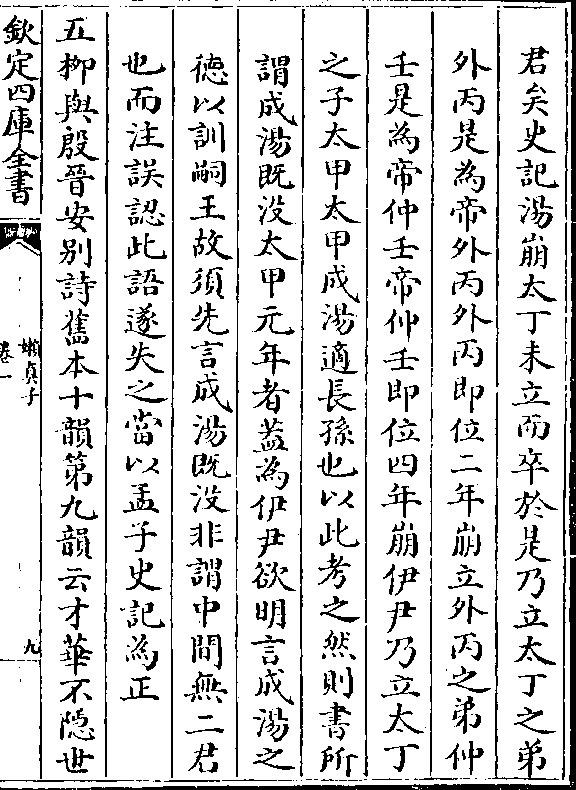 君矣史記湯崩太丁未立而卒於是乃立太丁之弟
外丙是為帝外丙外丙即位二年崩立外丙之弟仲
壬是為帝仲壬帝仲壬即位四年崩伊尹乃立太丁
之子太甲太甲成湯適長孫也以此考之然則書所
謂成湯既沒太甲元年者葢為伊尹欲明言成湯之
德以訓嗣王故須先言成湯既没非謂中間無二君
也而注誤認此語遂失之當以孟子史記為正
五柳與殷晉安别詩舊本十韻第九韻云才華不隠世
欽定四庫全書
嬾真子
卷一
九